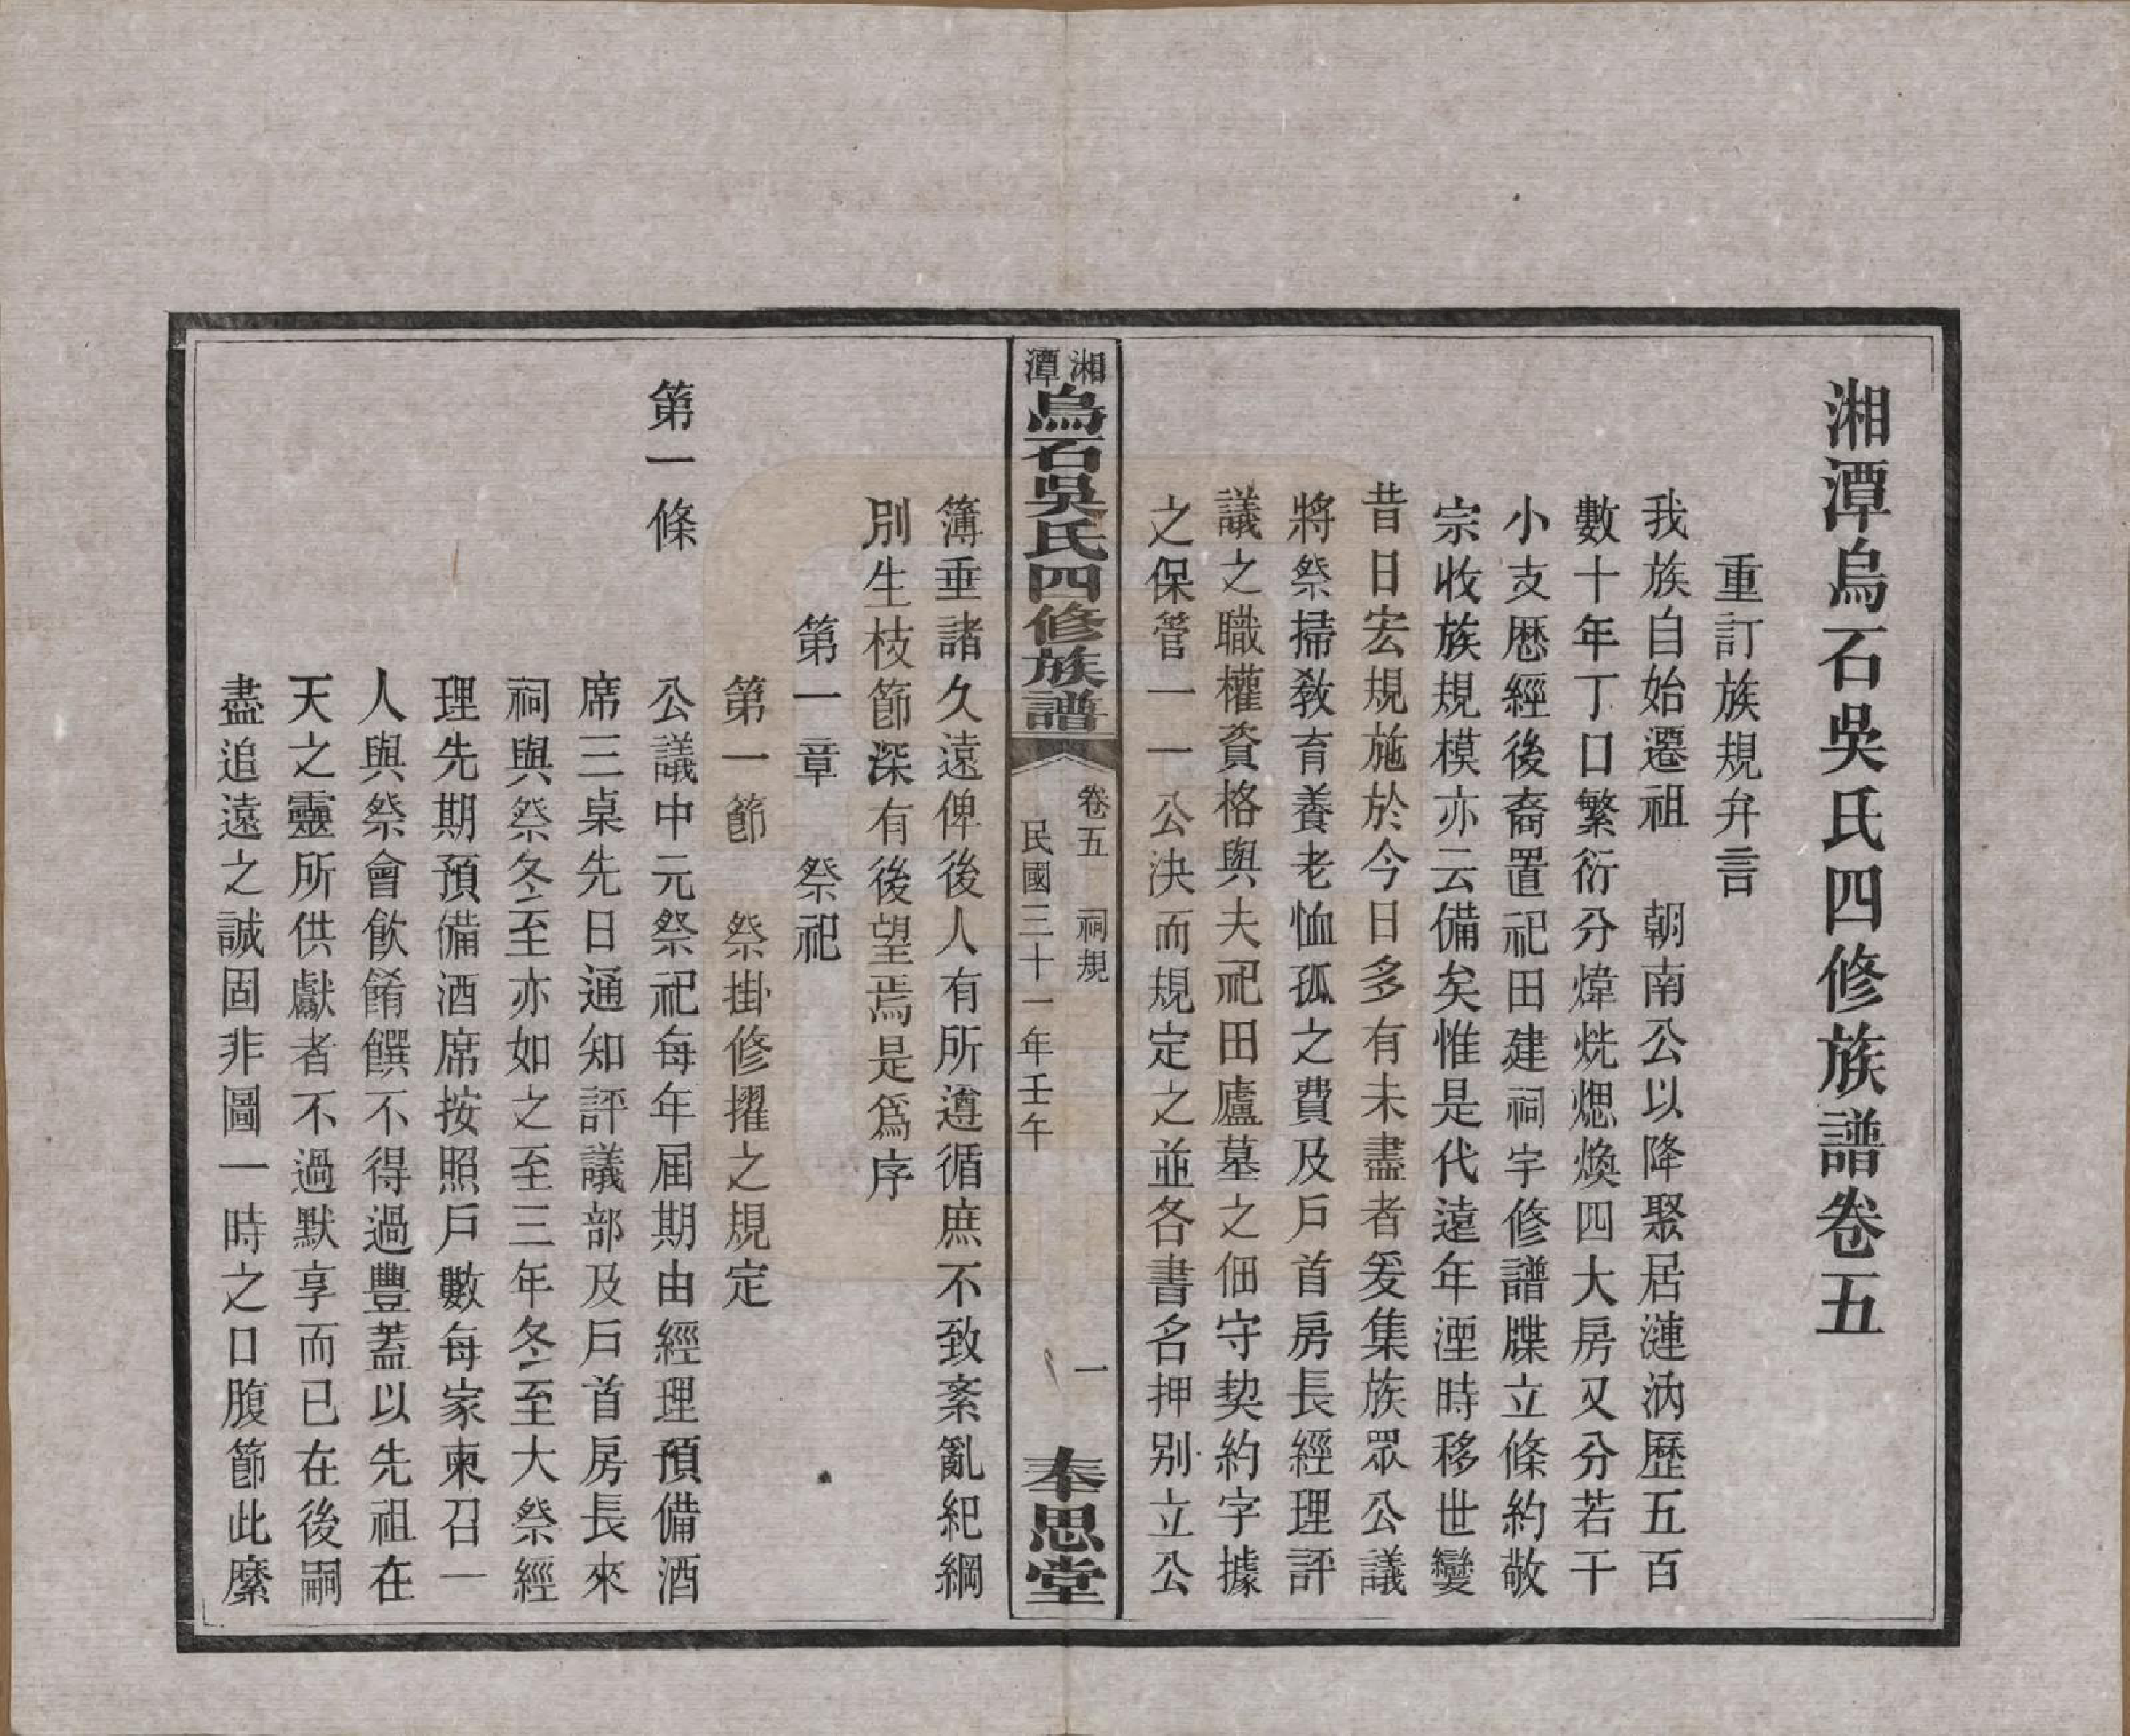 湘潭烏石吳氏四修族譜卷五
重訂族規弁言
我族自始遷祖　朝南公以降聚居漣汭歷五百
數十年丁口繁衍分煒烍煾煥四大房又分若干
小支歷經後裔置祀田建祠宇修譜牒立條約敬
宗收族規模亦云備矣惟是代遠年湮時移世變
昔日宏規施於今日多有未盡者爰集族眾公議
將祭掃教育養老恤孤之費及戶首房長經理評
議之職權資格與夫祀田廬墓之佃守契約字據
之保管一一公決而規定之並各書名押別立公
湘潭烏石吳氏四修族譜
卷五　祠規
民國三十一年壬午
一
奉思堂
簿垂諸久遠俾後人有所遵循庶不致紊亂紀綱
別生枝節深有後望焉是爲序
第一章　祭祀
第一節　祭掛修擢之規定
第一條　公議中元祭祀每年屆期由經理預備酒
席三桌先日通知評議部及戶首房長來
祠與祭冬至亦如之至三年冬至大祭經
理先期預備酒席按照戶數每家柬召一
人與祭會飲餚饌不得過豐蓋以先祖在
天之靈所供獻者不過默享而已在後嗣
盡追遠之誠固非圖一時之口腹節此縻